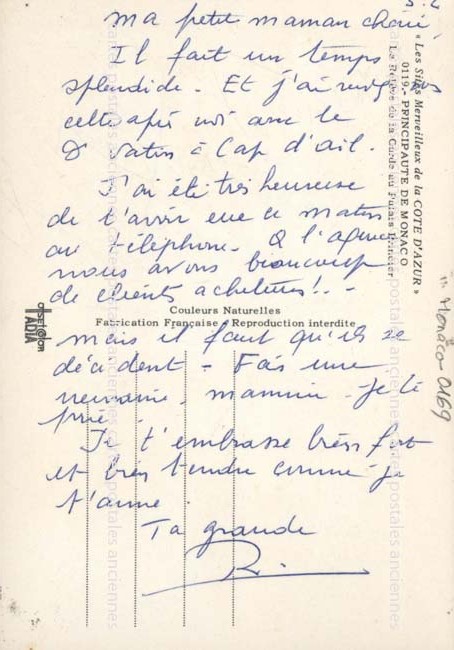 ma petite maman chérie,
Il fait un temps
splendide. Et j'ai
cette après midi avec le
Dr à Cap d'ail.
J'ai été très heureuse
de t'avoir eue ce matin
au téléphone. A l'agence
nous avons beaucoup
de clients acheteurs!..
mais il faut qu'ils se
décident - Fais une
neuvaine, mamine. je te
prie.
Je t'embrasse bien fort
et bien tendre comme je
t'aime.
Ta grande
R.
« Les Sites Merveilleux de la COTE D'AZUR »
0119.- PRINCIPAUTE DE MONACO
La Relève de la Garde au Palais Princier
Couleurs Naturelles
Fabrication Française - Reproduction interdite
ADIA
Monaco 0169
cartes postales anciennes